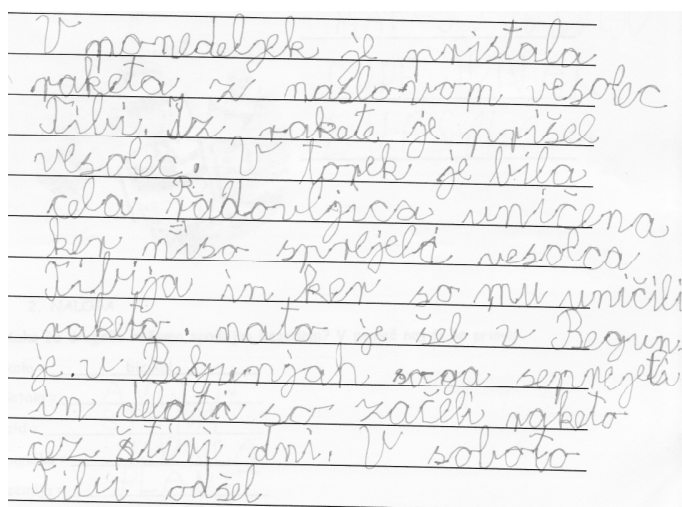 V ponedeljek je pristala
raketa, z naslovom vesolec
Žibi. Iz rakete je prišel
vesolec. V torek je bila
cela Radovljica uničena
ker niso sprejeli vesolca
Žibija in ker so mu uničili
raketo. nato je šel v Begun
je. v Begunjah so ga
in delati so začeli raketo
čez štiri dni. V soboto
odšel